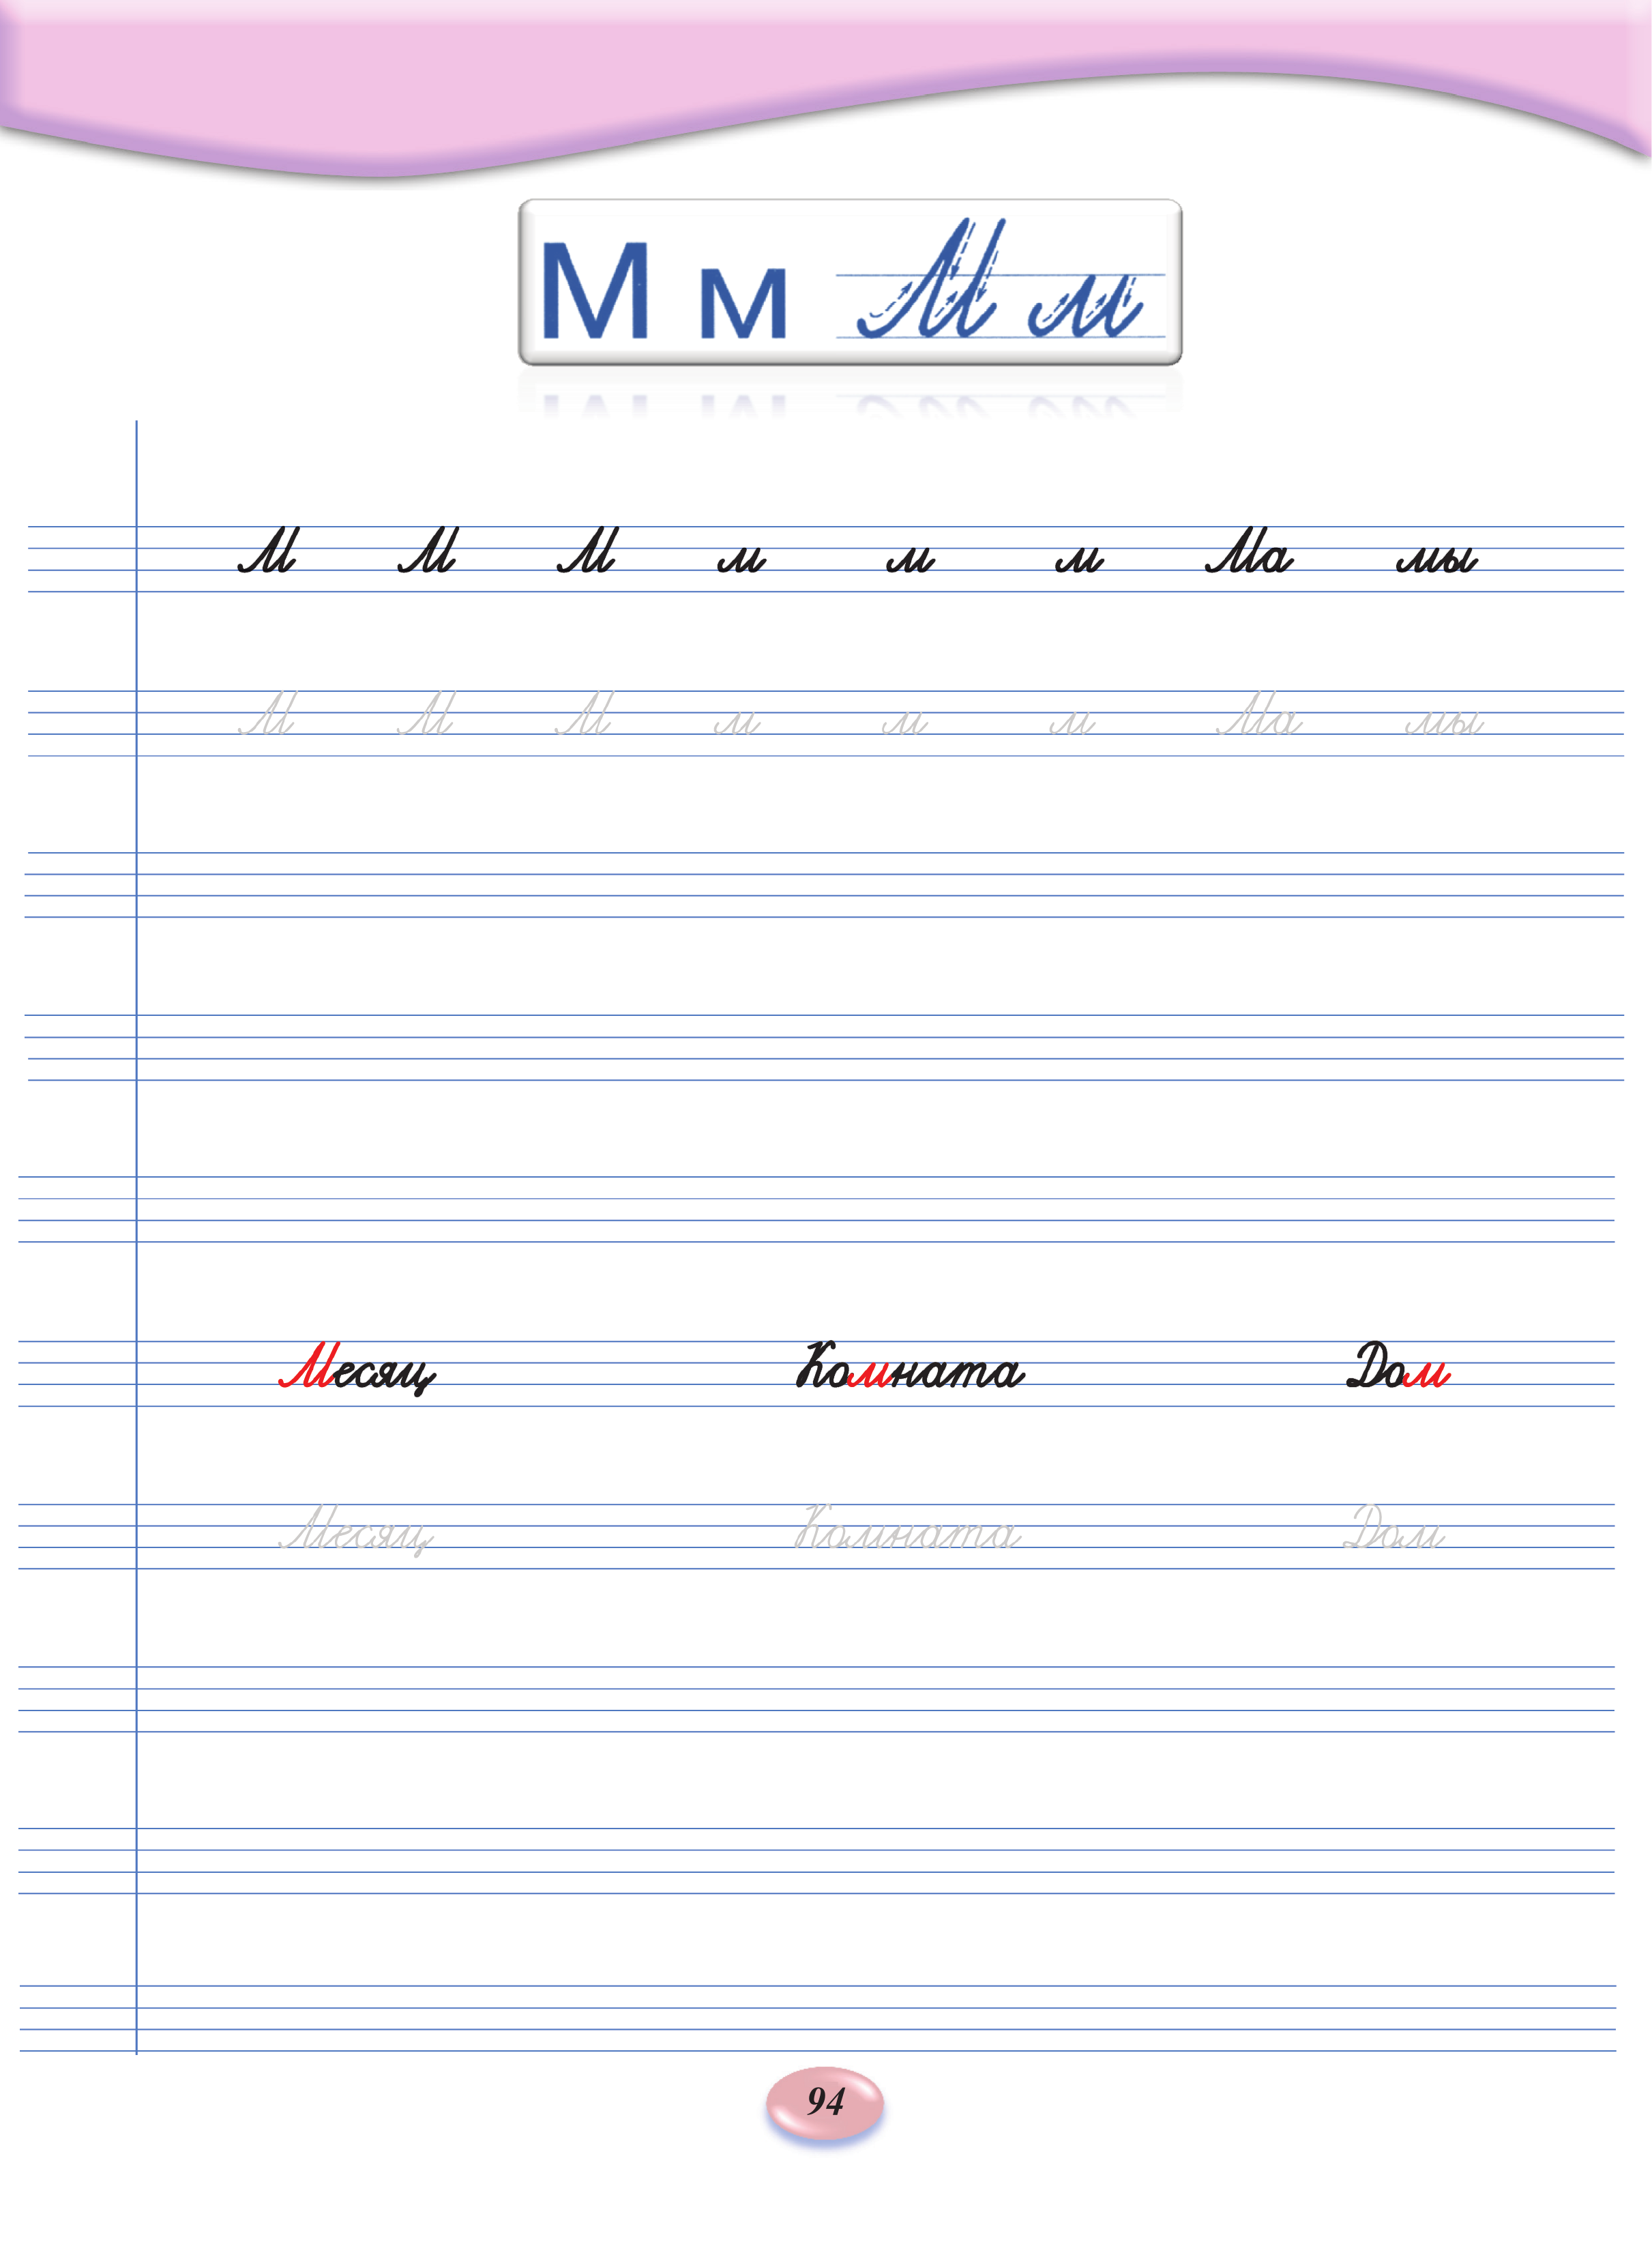 М м М м
М М М м м м Ма мы
М М М м м м Ма мы
Месяц Комната Дом
Месяц Комната Дом
94